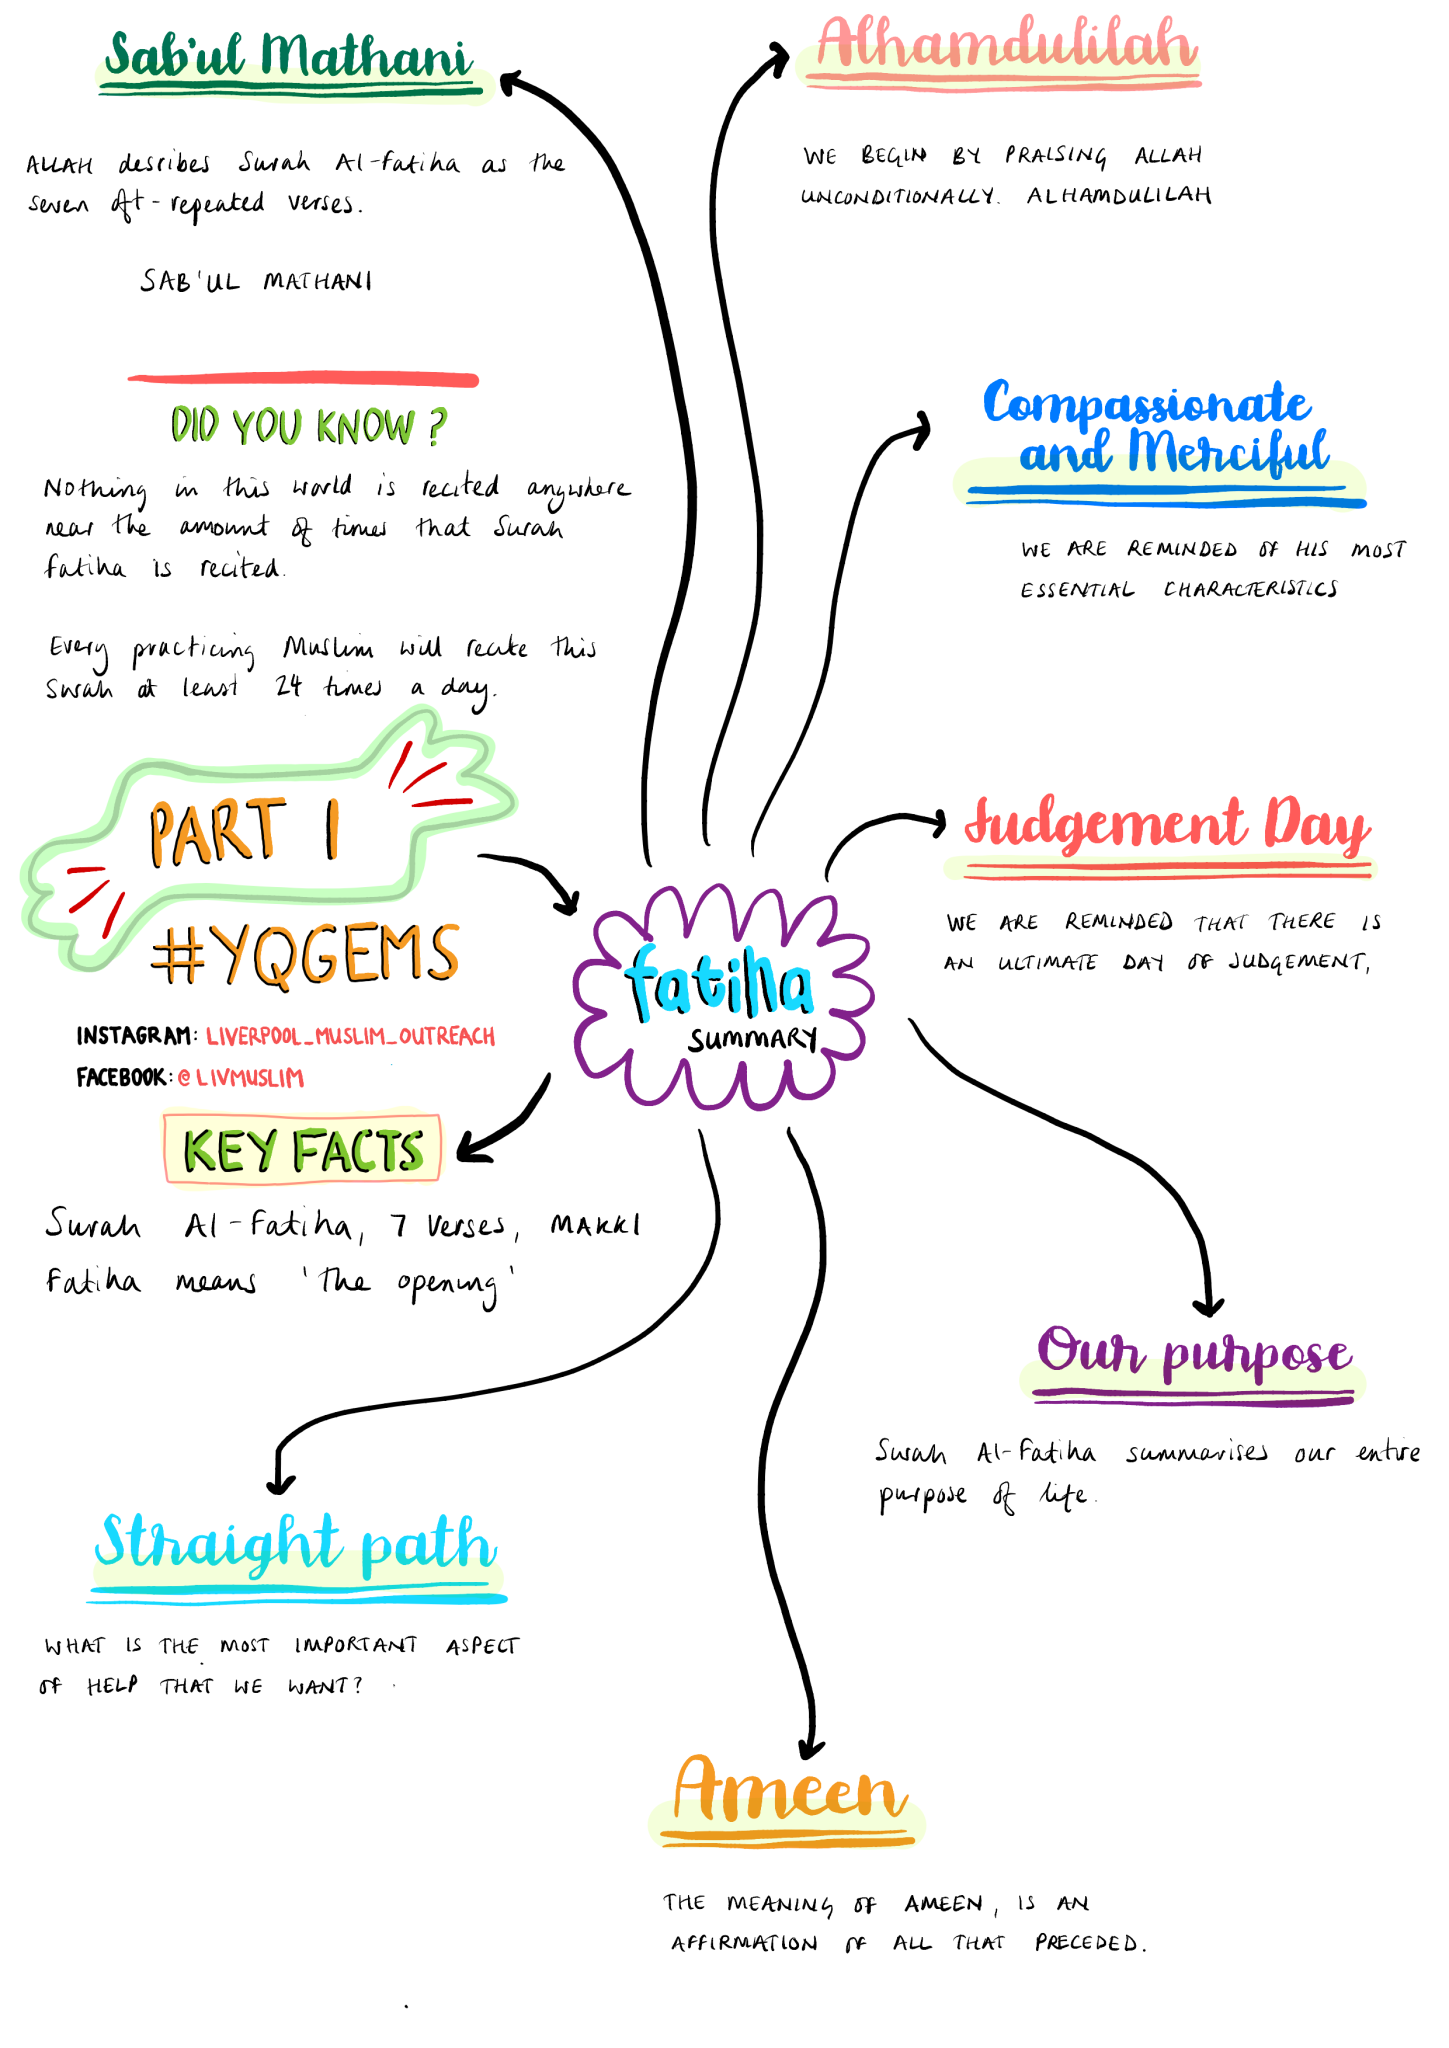 Sab'ul Mathani
ALLAH desribes Surah Al-Fatiha as the
seven oft-repeated verses.
SAB'UL MATHANI
DID YOU KNOW?
Nothing in this world is recited anywhere
near the amount of times that Surah
Fatiha is recited.
Every practicing Muslim will recite this
Surah at least 24 times a day.
PART 1
#YQGEMS
INSTAGRAM: LIVERPOOL_MUSLIM_OUTREACH
FACEBOOK: @LIVMUSLIM
KEY FACTS
Surah Al-Fatiha, 7 verses, MAKKI
Fatiha means 'The opening'
fatiha
SUMMARY
Alhamdulilah
WE BEGIN BY PRAISING ALLAH
UNCONDITIONALLY. ALHAMDULILAH
Compassionate
and Merciful
WE ARE REMINDED OF HIS MOST
ESSENTIAL CHARACTERISTICS
Judgement Day
WE ARE REMINDED THAT THERE IS
AN ULTIMATE DAY OF JUDGEMENT,
Our purpose
Surah Al-Fatiha summarises our entire
purpose of life.
Straight path
WHAT IS THE MOST IMPORTANT ASPECT
OF HELP THAT WE WANT?
Ameen
THE MEANING OF AMEEN, IS AN
AFFIRMATION OF ALL THAT PRECEDED.